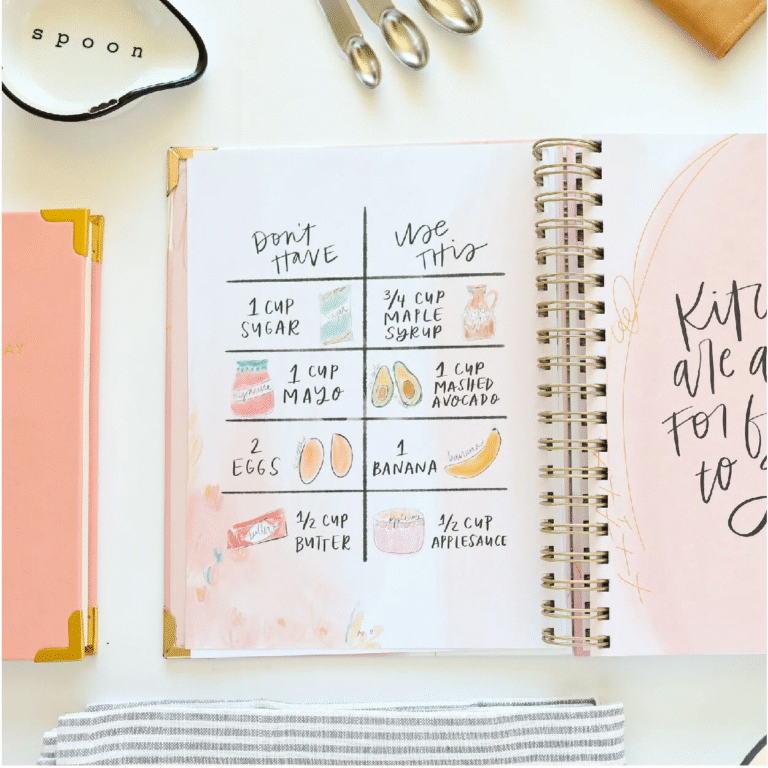 spoon
AY
DON'T
HAVE
USE
THIS
1 CUP
SUGAR
3/4 CUP
MAPLE
SYRUP
1 CUP
MAYO
1 CUP
MASHED
AVOCADO
2
EGGS
1
BANANA
banana
butter
1/2 CUP
BUTTER
1/2 CUP
APPLESAUCE
Kitc
are a
For f
to